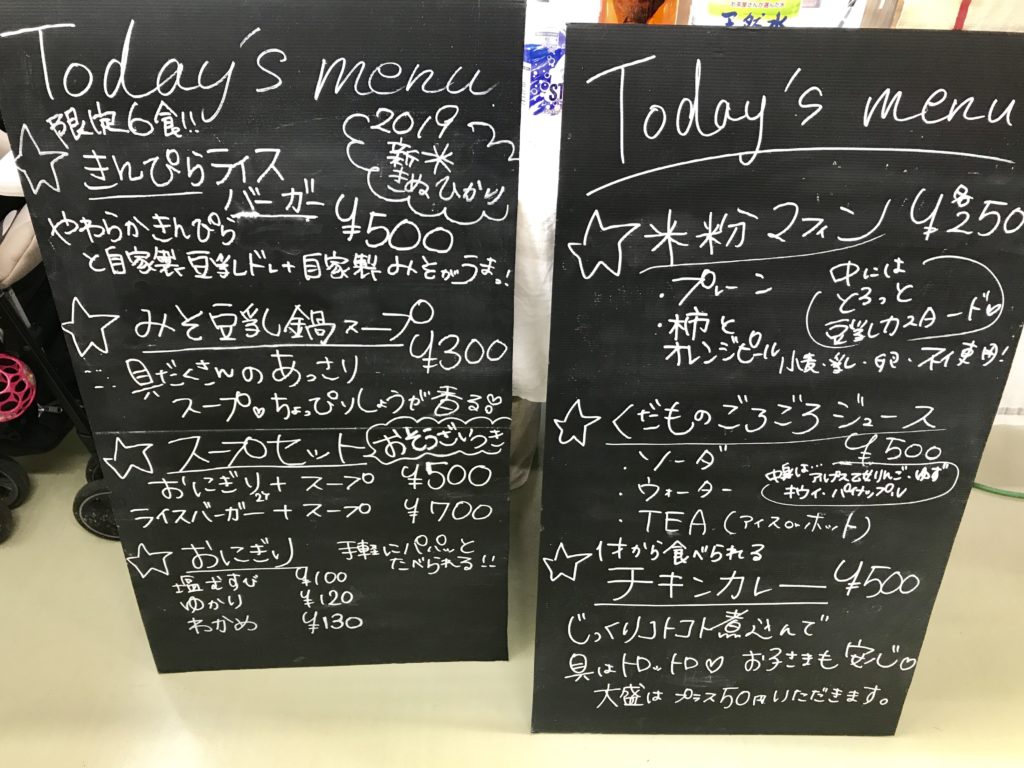 Today's menu
限定6食!!
2019
新米
きぬひかり
きんぴらライス
バーガー
¥500
やわらかきんぴら
と自家製豆乳ドレ+自家製みそがうまっ!
みそ豆乳鍋スープ
¥300
具だくさんのあっさり
スープ♡ちょっぴりしょうが香る
スープセット
おそうざいつき
おにぎり2ケ+スープ ¥500
ライスバーガー+スープ ¥700
おにぎり
手軽にパパッと
たべられる!!
塩むすび ¥100
ゆかり ¥120
わかめ ¥130
お茶屋さんが選んだ
天然水
Today's menu
米粉マフィン 各¥250
・プレーン
・柿と
オレンジピール
中には
とろっと
豆乳カスタード♡
小麦・乳・卵・不使用!
くだものごろごろジュース
¥500
・ソーダ
・ウォーター
・TEA(アイスorホット)
中身は…アルプス乙女りんご・ゆず
キウイ・パイナップル
1才から食べられる
チキンカレー ¥500
じっくりコトコト煮込んで
具はトロットロ♡ お子さまも安心♡
大盛はプラス50円いただきます。